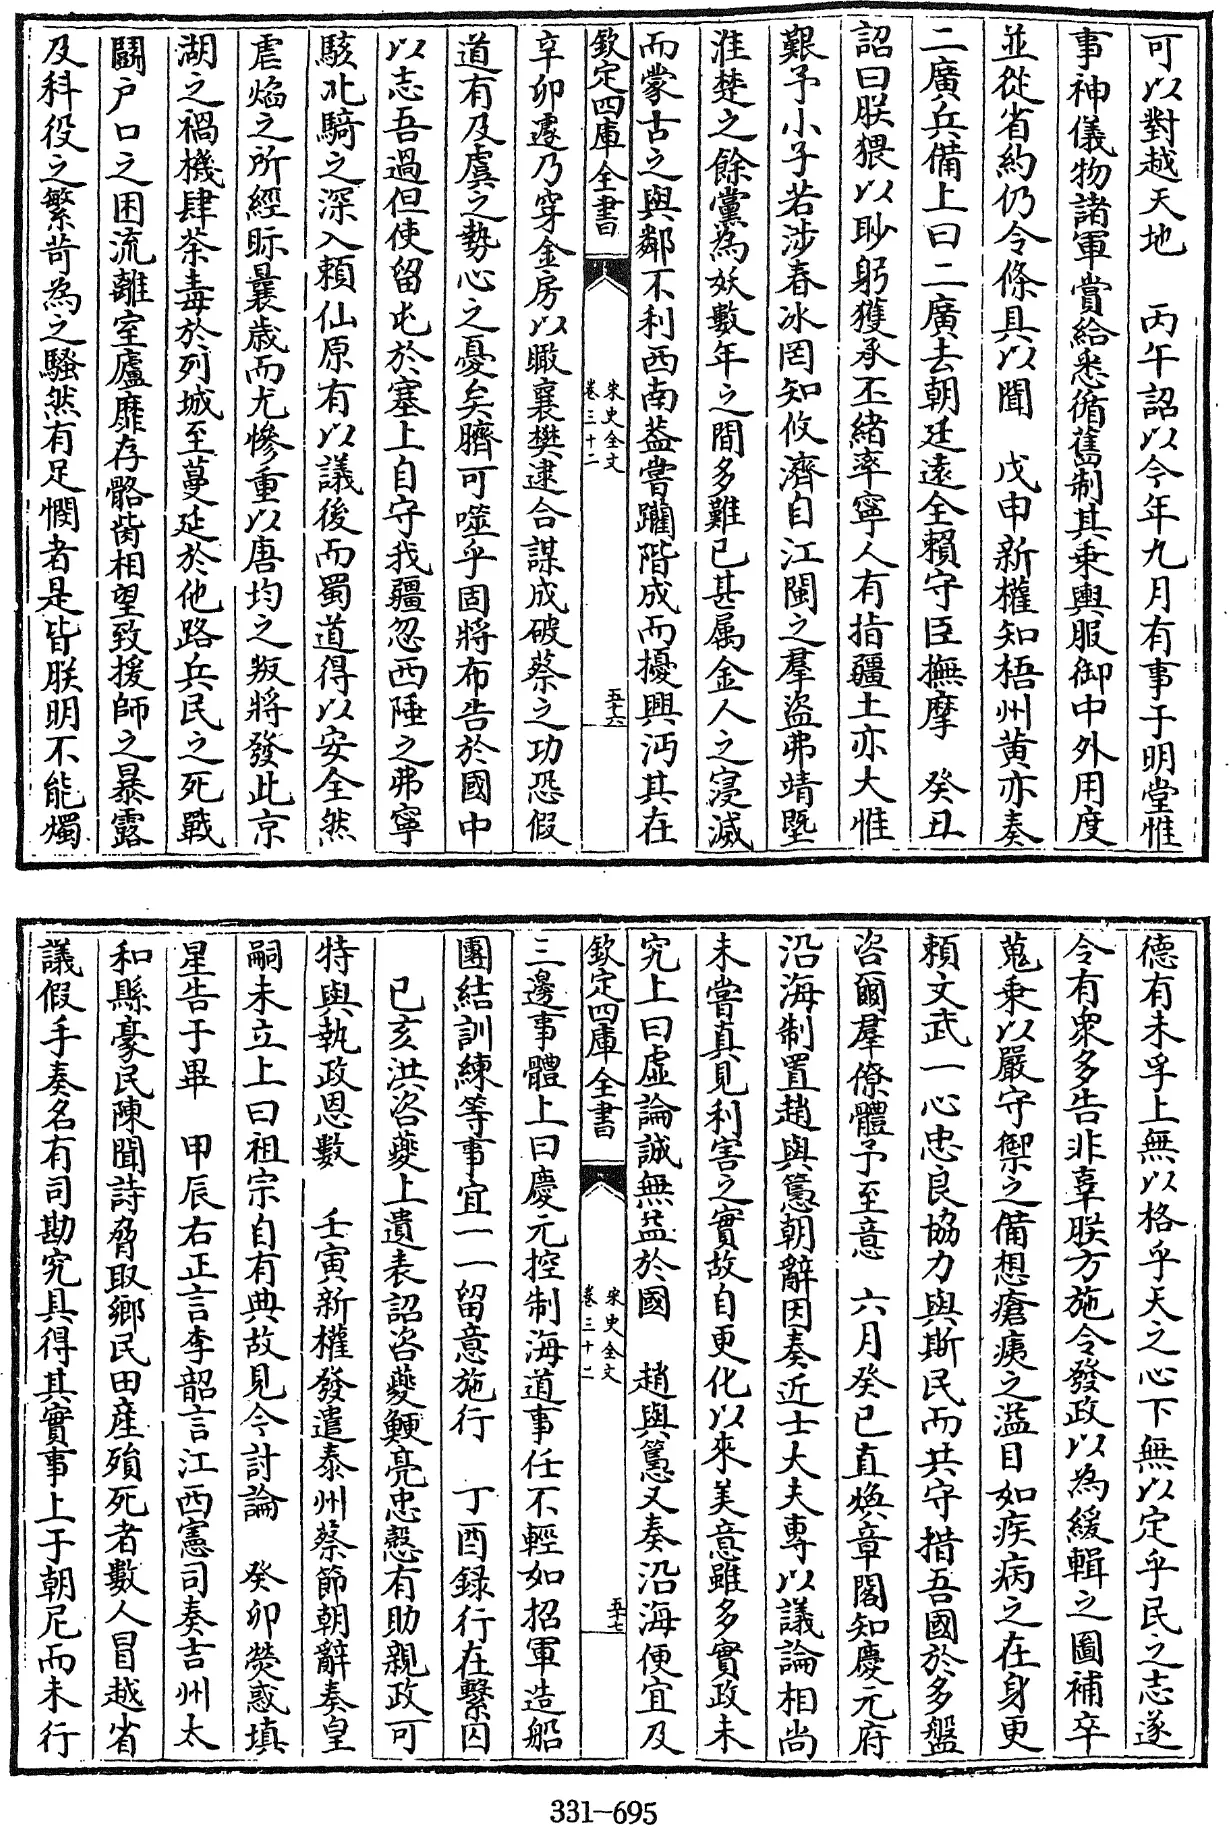 可以對越天地　丙午詔以今年九月有事于明堂惟
事神儀物諸軍賞給悉循舊制其乗輿服御中外用度
並從省約仍令條具以聞　戊申新權知梧州黄亦奏
二廣兵備上曰二廣去朝廷遠全賴守臣撫摩　癸丑
詔曰朕猥以眇躬獲承丕緒率寧人有指疆土亦大惟
艱予小子若涉春冰罔知攸濟自江閩之羣盜弗靖暨
淮楚之餘黨為妖數年之間多難已甚属金人之寖滅
而蒙古之與鄰不利西南葢嘗躪階成而擾興沔其在
欽定四庫全書
宋史全文
卷三十二
五十六
辛卯遽乃穿金房以瞰襄樊逮合謀成破蔡之功恐假
道有及虞之勢心之憂矣臍可噬乎固將布告於國中
以志吾過但使留屯於塞上自守我疆忽西陲之弗寧
駭北騎之深入賴仙原有以議後而蜀道得以安全然
虐焰之所經眎曩歲而尤慘重以唐均之叛將發此京
湖之禍機肆荼毒於列城至蔓延於他路兵民之死戰
鬭户口之困流離室廬靡存骼胔相望致援師之暴露
及科役之繁苛為之騷然有足憫者是皆朕明不能燭
德有未孚上無以格乎天之心下無以定乎民之志遂
令有衆多告非辜朕方施令發政以為緩輯之圖補卒
蒐乗以嚴守禦之備想瘡痍之溢目如疾病之在身更
頼文武一心忠良協力與斯民而共守措吾國於多盤
咨爾羣僚體予至意　六月癸巳直煥章閣知慶元府
沿海制置趙與𢡟朝辭因奏近士大夫專以議論相尚
未嘗真見利害之實故自更化以來美意雖多實政未
究上曰虛論誠無益於國　趙與𢡟又奏沿海便宜及
欽定四庫全書
宋史全文
卷三十二
五十七
三邊事體上曰慶元控制海道事任不輕如招軍造船
團結訓練等事宜一一留意施行　丁酉録行在繫囚
己亥洪咨夔上遺表詔咨夔鯁亮忠慤有助親政可
特與執政恩數　壬寅新權發遣泰州蔡節朝辭奏皇
嗣未立上曰祖宗自有典故見令討論　癸卯熒惑填
星告于畢　甲辰右正言李韶言江西憲司奏吉州太
和縣豪民陳聞詩脅取鄉民田産殞死者數人冒越省
議假手奏名有司勘究具得其實事上于朝尼而未行
331-695